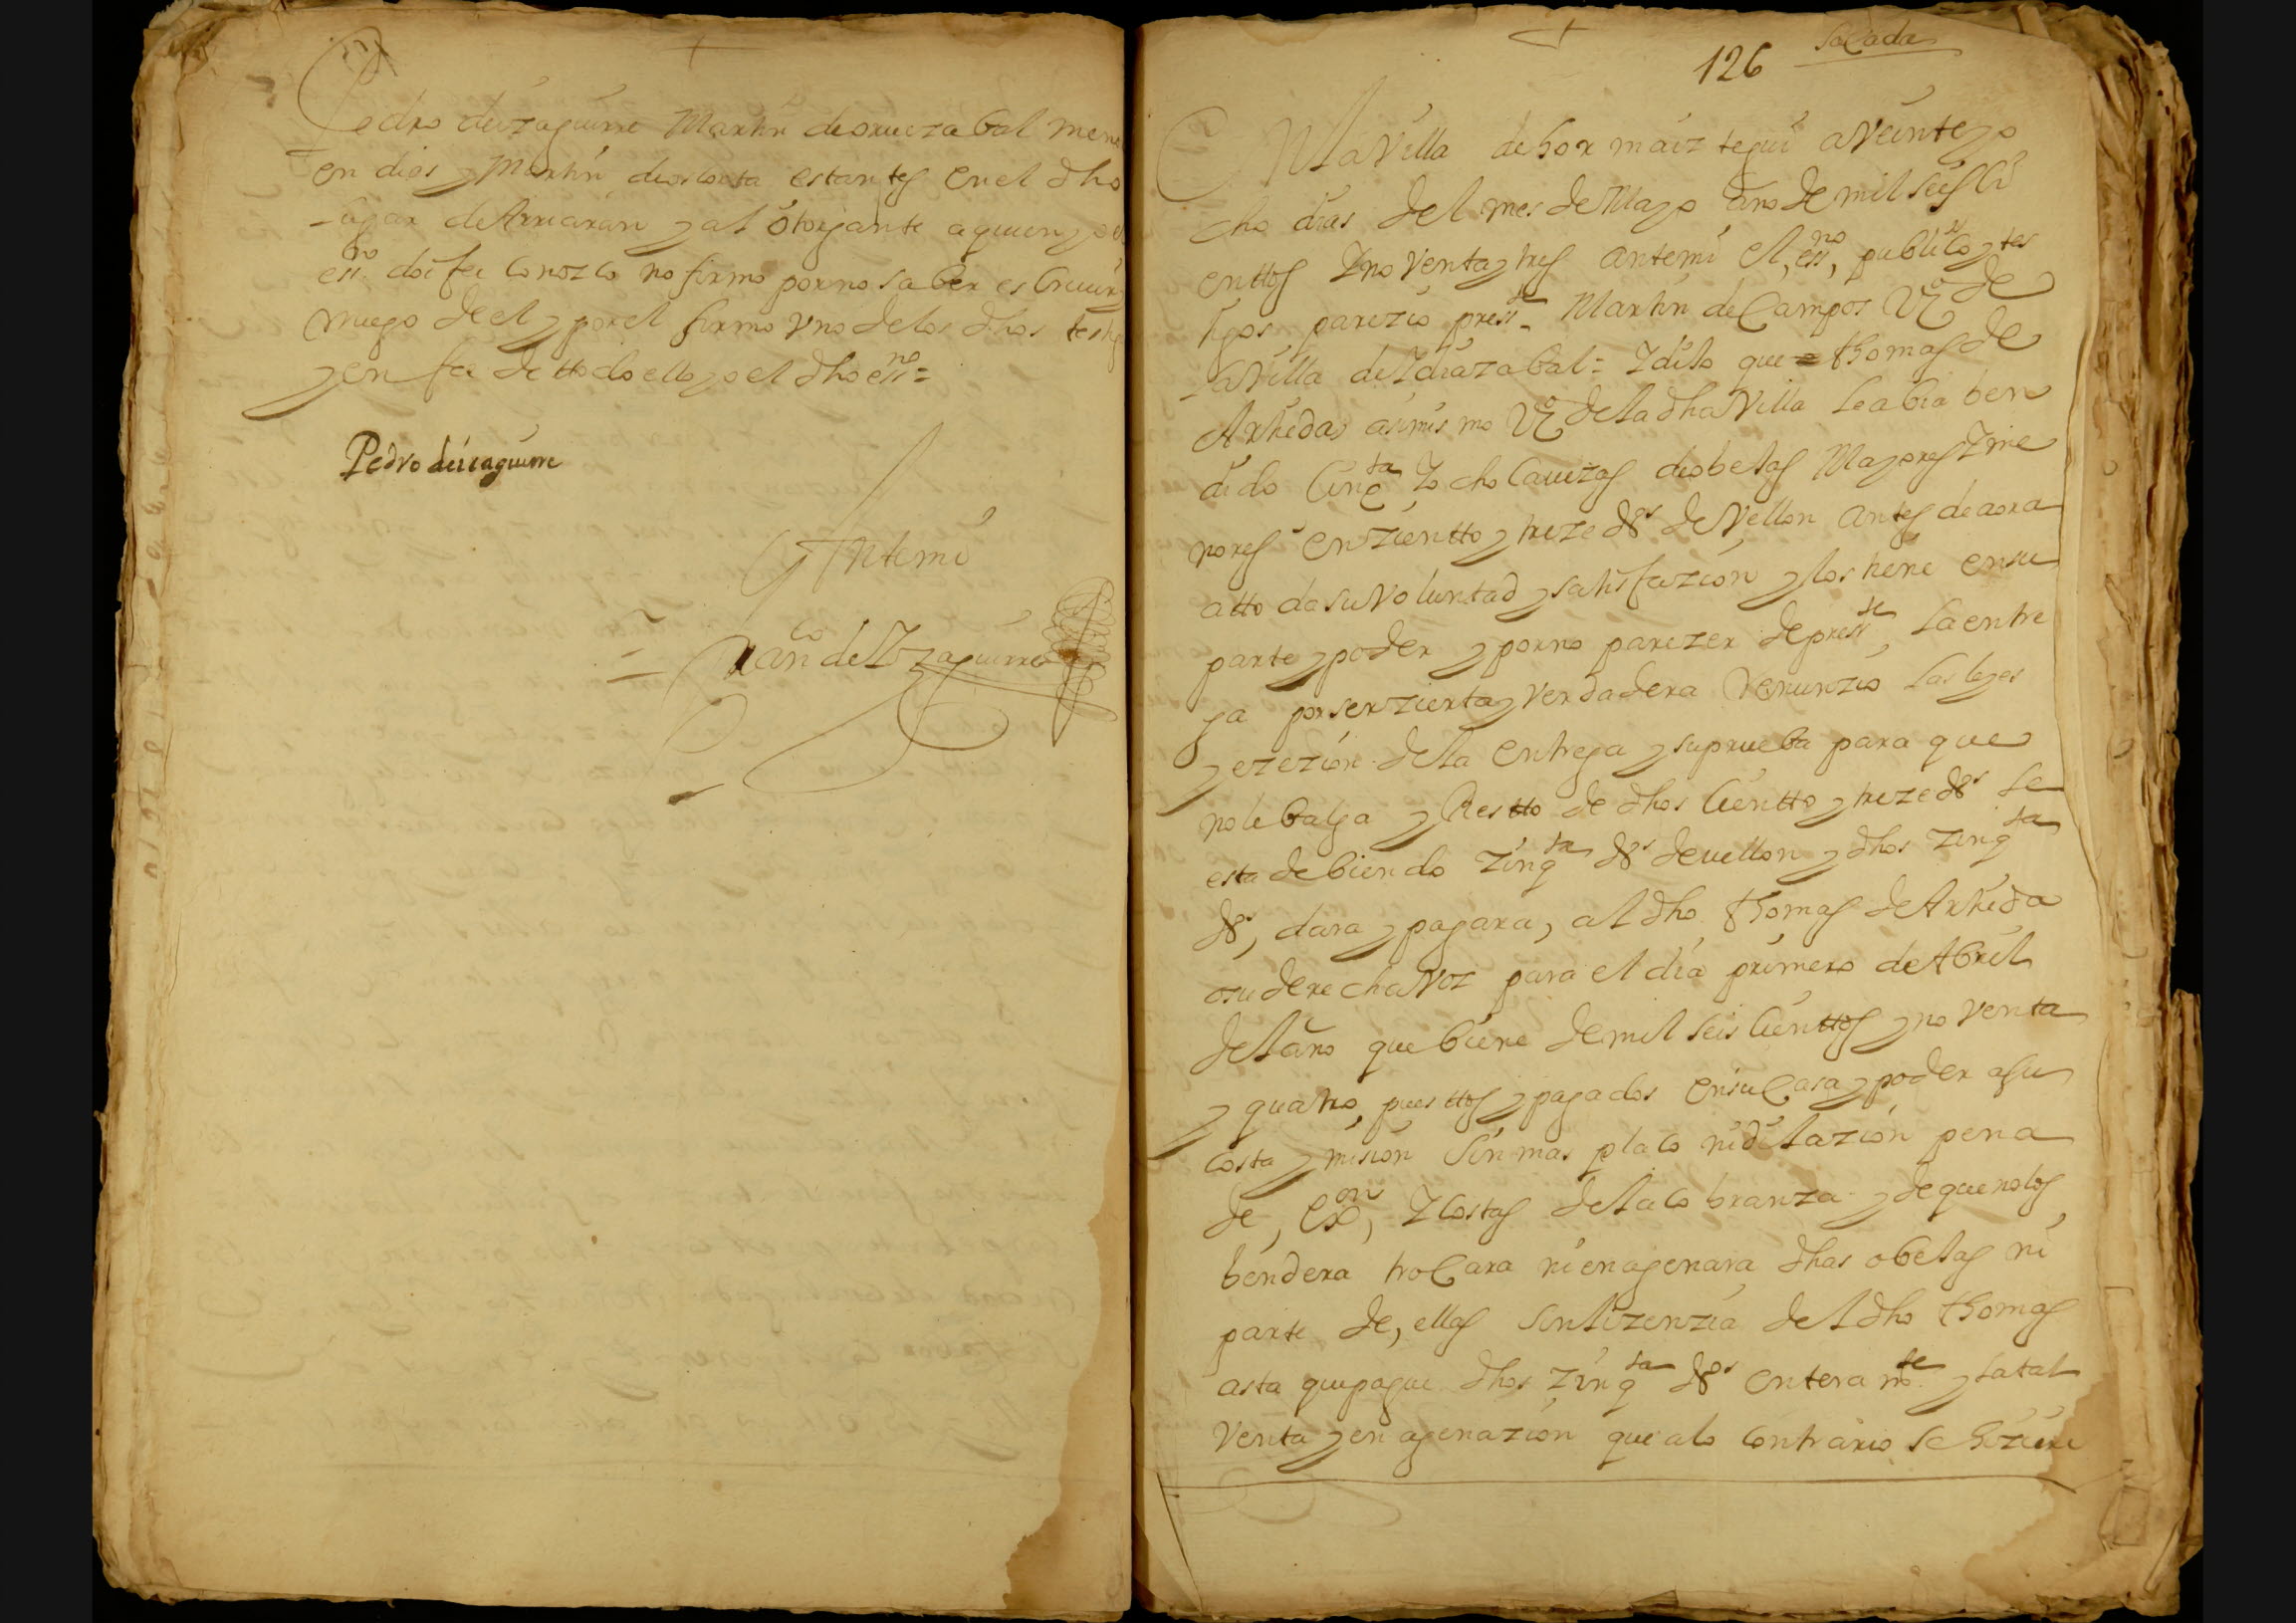 Pedro deizaguirre Martin deoruezabal men
en dias y Martin deoslorta estantes en el dho
lugar deArriaran y al otorgante aquien yo el
essno doi fee conozco no firmo por no saber escriuir
ruego de el y por el firmo vno de los dhos testig
y en fee de ttodo ello yo el dho essno =
Pedro deiçaguirre
Antemi
Franco de Yzaguirre
126 Sacada
En la Villa de hormaiztegui a Veinte y o
cho dias del mes de Mayo año de mil seis ci
enttos Y noventa y tres antemi el, essno, publico y tes
tigos, parezio presste Martin de Campos Vzº de
la Villa de Ydiazabal = Y dixo que = thomas de
Arteida asimismo Vzº de la dha Villa le abia ben
dido cinqta Y ocho Cauezas de obejas Mayores Y me
nores en zientto y treze ds de Vellon antes de aora
atto da su Voluntad y satisfazion y los tiene en su
parte y poder y por no parezer de presste, la entre
ga por ser zierta y verdadera Renunzio las leyes
y ezezion de la entrega y suprueba para que
no le balga y Restto de dhos cientto y treze ds le
esta debiendo zinqta ds de uellon y dhos zinqta
ds, dara y pagara, al dho thomas de Arteida
o su derecha Voz para el dia primero de Abril
del año que biene de mil seis cienttos y noventa
y quatro, puesttos y pagados en su Casa y poder a su
costa y mision sin mas plaço ni dilazion pena
de, exon, Y costas de la cobranza y de que no los
bendera trocara ni enagenara dhas obejas ni
parte de, ellas sin lizenzia del dho thomas
asta que pague dhos zinqta ds enteramte y la tal
Venta y enagenazion que a lo contrario se hiziere